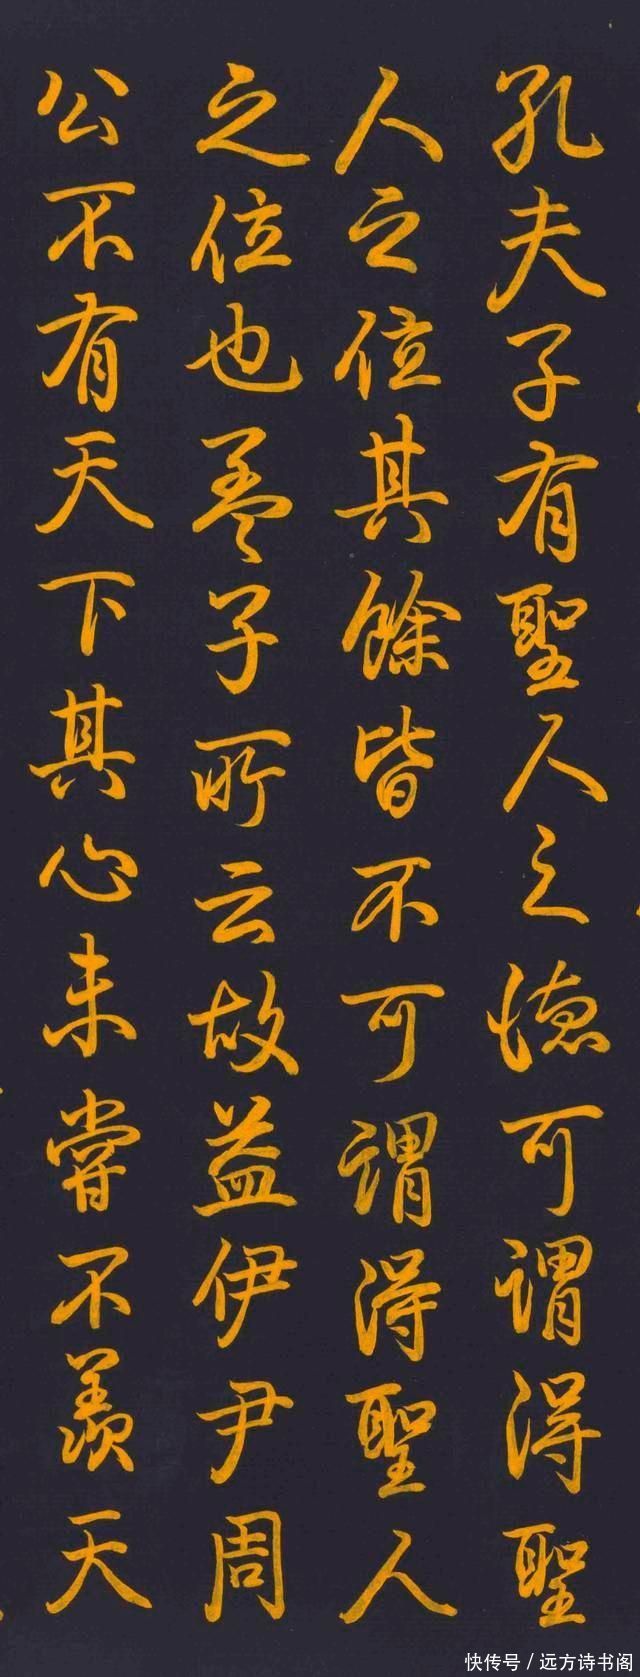 孔夫子有聖人之德可謂得聖
人之位其餘皆不可謂得聖人
之位也孟子所云故益伊尹周
公不有天下其心未嘗不羨天
快传号/远方诗书阁